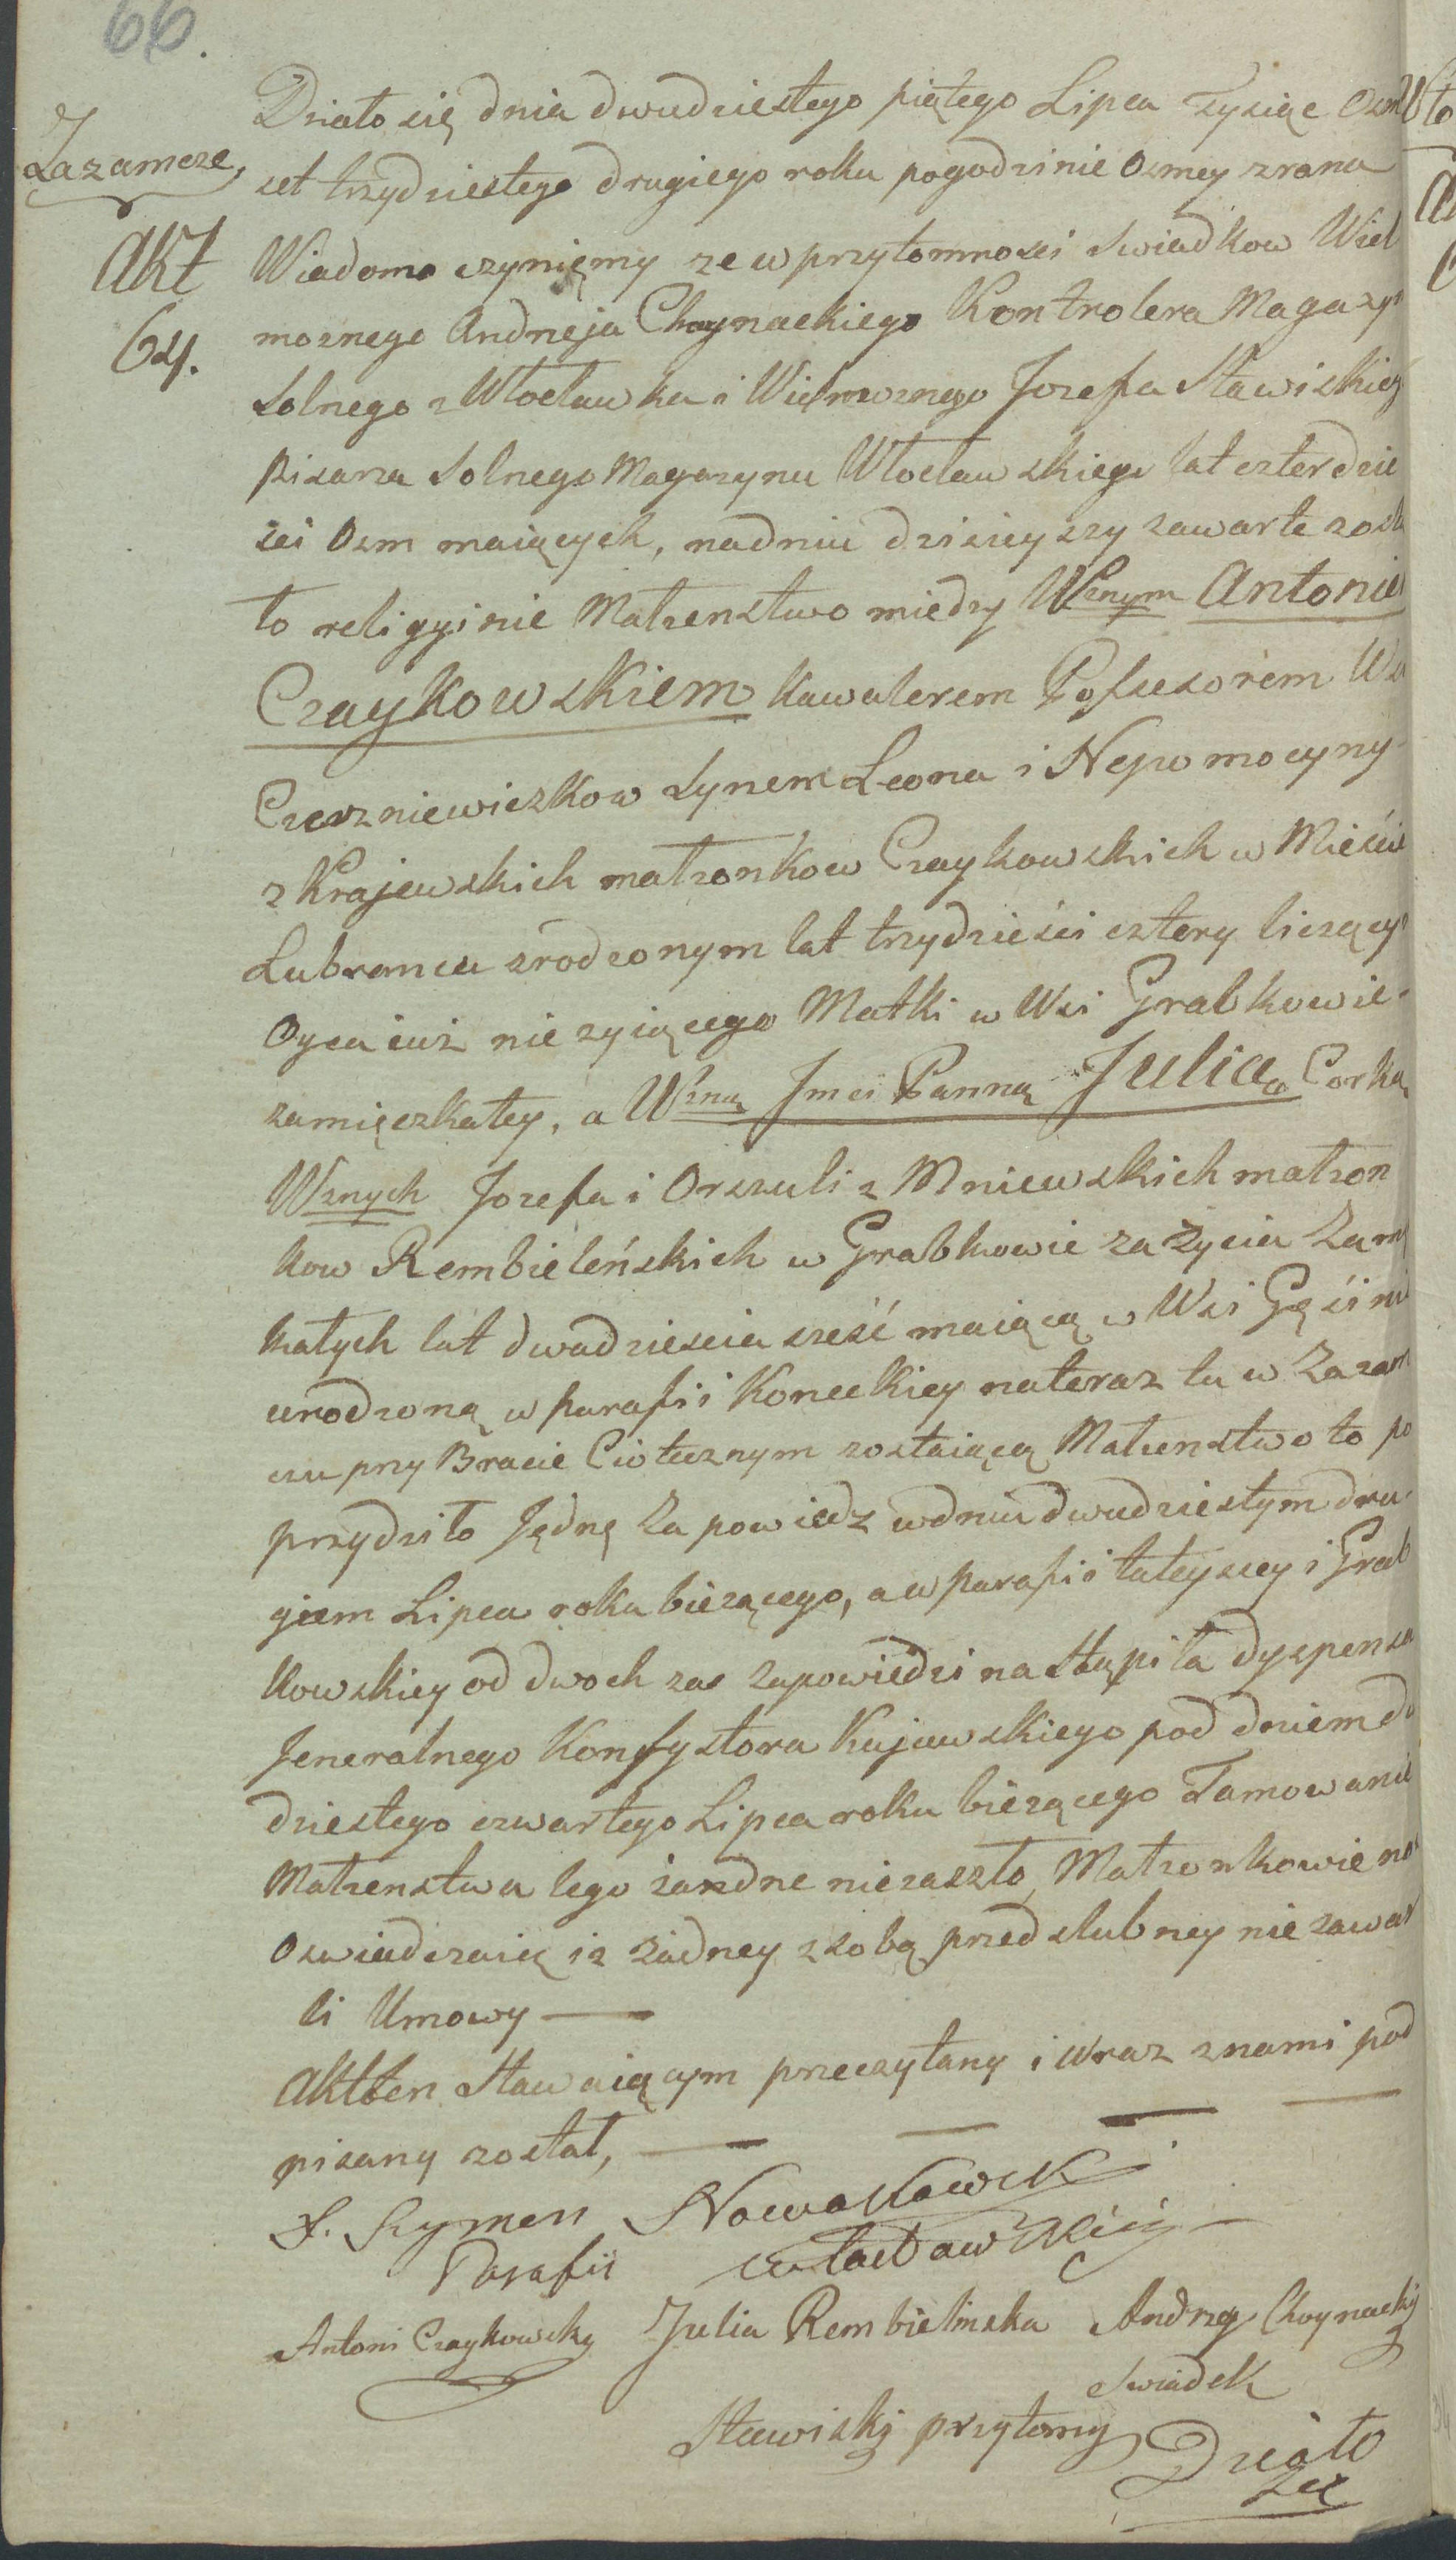 66.
Zazamcze,
Akt
64.
Działo się dnia dwudziestego piątego Lipca Tysiąc Osm
set trzydziestego drugiego roku pogodzinie Osmey zrana
Wiadomo czyniemy ze w przytomności Swiadkow Wiel
moznego Andrzeja Choynackiego Kontrolera Magazyn
Solnego z Włocławka i Wielmoznego Jozefa Stawiskieg
Pisarza Solnego Magazynu Włocławskiego lat czterdzie
ści Osm maiących, nadniu dzisieyszy zawarte zosta
to religyinie Małzenstwo między Wznym Antonie
Czaykowskiem Kawalerem Possesorem Wsi
Czerzniewiczkow Synem Leona i Nepomocyny
z Krajewskich małzonkow Czaykowskich w Mieście
Lubrancu zrodzonym lat trzydzieści cztery liczący
Oyca iuz nie zyiącego Matki w Wsi Grabkowie
zamięszkałey, a Wzną Jmci Panną Julią Corką
Wznych Jozefa i Orszuli z Mniewskich małzon
kow Rembieleńskich w Grabkowie za życia Zamę
kałych lat dwadziescia sześć maiącą w Wsi Gęśini
urodzoną w parafii Koneckiey nateraz tu w Zazam
czu przy Bracie Ciotecznym zostaiącą Małzenstwo to po
przydziło Jędnę Zapowiedz wdniu dwudziestym dru
giem Lipca roku biezącego, a w parafii tuteyszey i Grab
kowskiey od dwoch zas zapowiedzi nastąpiła dyspensa
Jeneralnego Konsystorza Kujawskiego pod dniem d
dziestego czwartego Lipca roku biezącego Tamowanie
Małzenstwa tego żandne niezaszło, Małzonkowie no
Oswiadczaią iz żadney z sobą przedslubney nie zawar
li Umowy —
Aktten Stawaiącym przeczytany i Wraz znami pod
pisany został, — — — —
X. Szymon Nowakowski
Parafii Włocławskiéy
Antoni Czaykowsky Julia Rembielinska Andrzey Choynacky
Swiadek
Stawisky przytomy
Działo
się